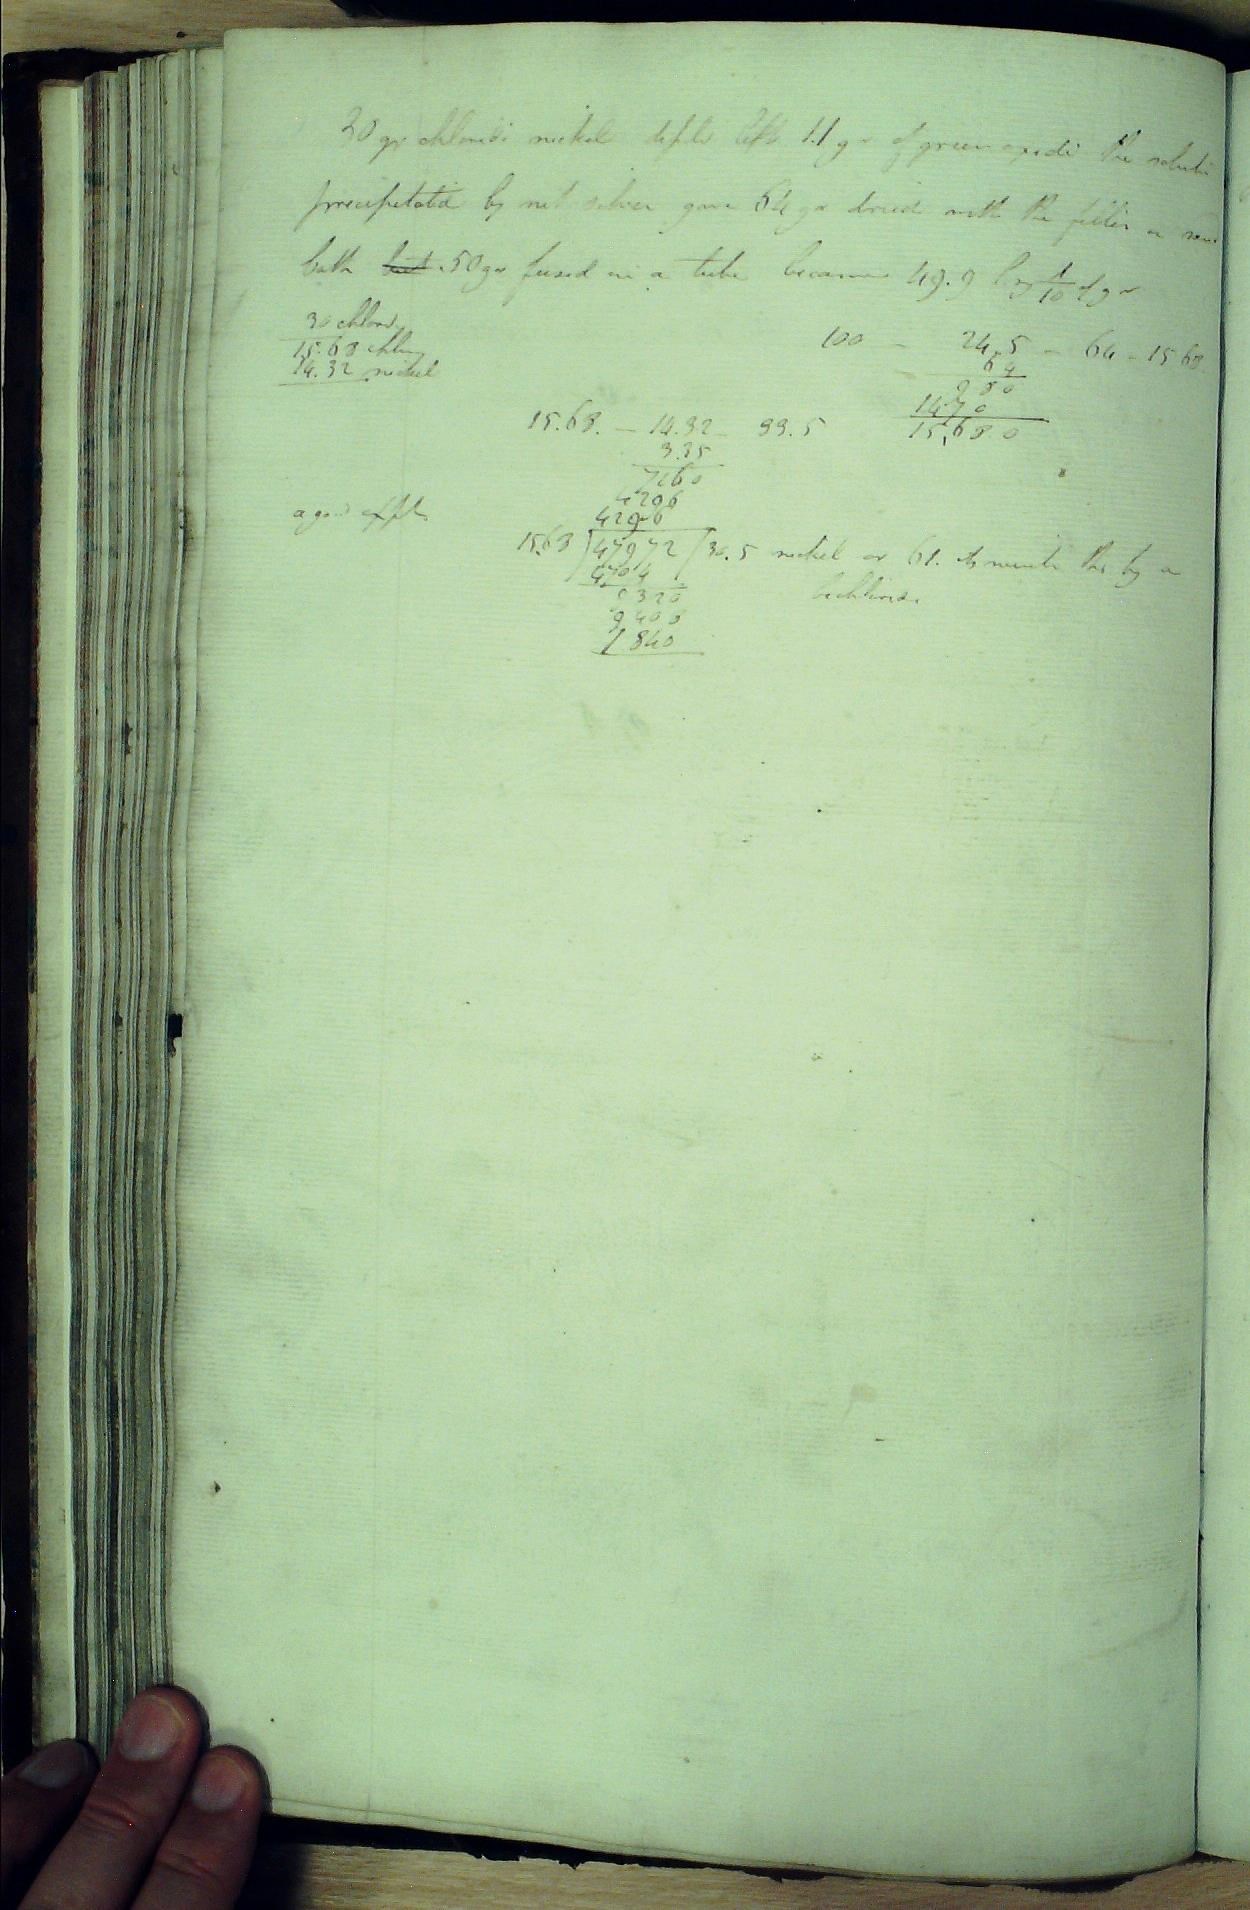 30 gr chloride nickel left 1.1 gr of green oxide the solution
precipitated by nit silver gave 64 gr dried with the filter on sand
bath but 50 gr fused in a tube became 49.9 loss 1/10 of gr
30 chlord
15.68 chlor
14.32 nickel
100 - 24.5 - 64 - 15 68
64
980
1470
15,680
15.68. - 14.32 - 33.5
3.35
7160
4296
4296
a good exptt
15.68 ) 47972 ( 30.5 nickel or 61. this by a
4704
9320
9400
1840
bichloride